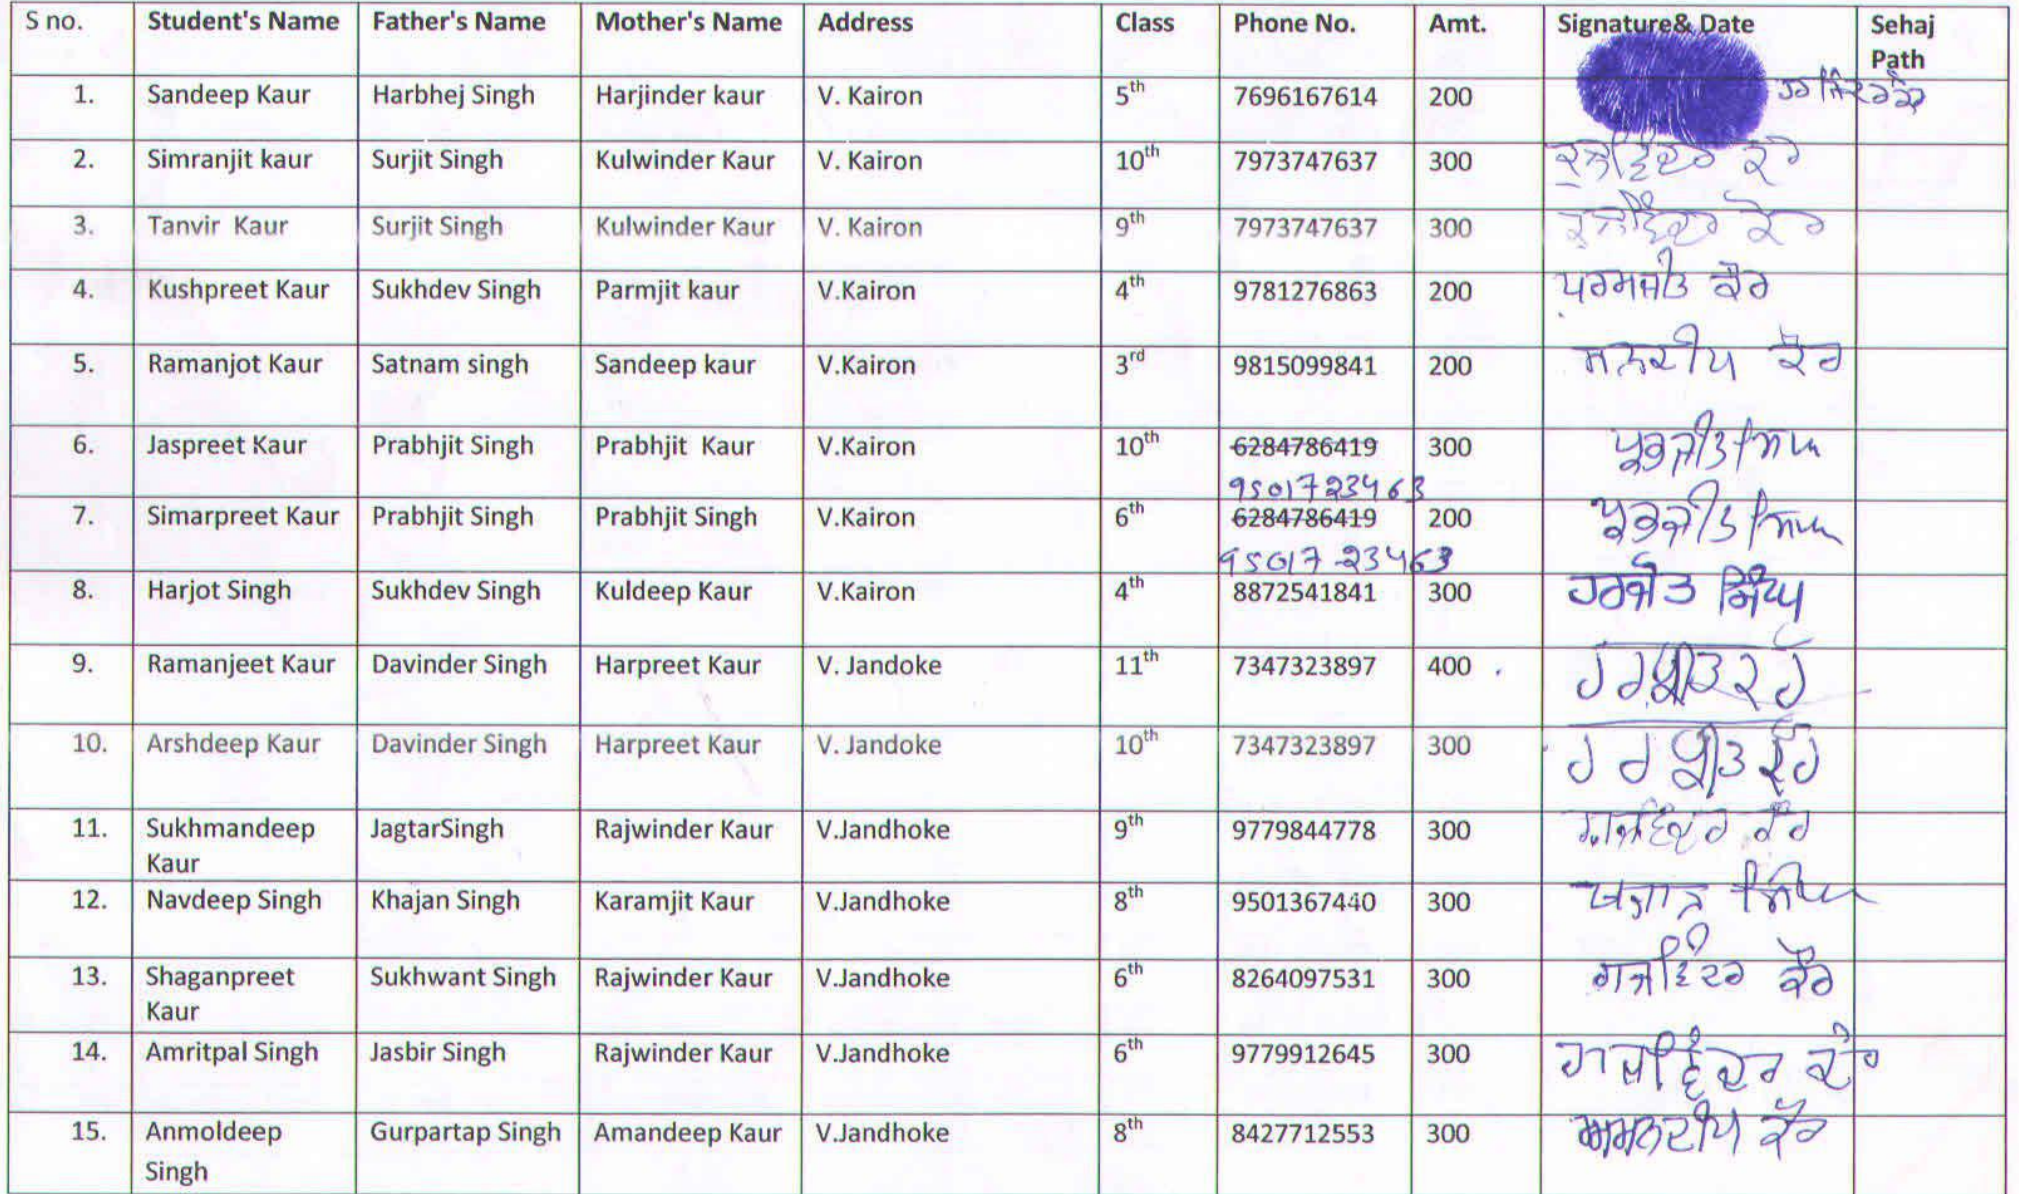 S no. Student's Name Father's Name Mother's Name Address Class Phone No. Amt. Signature& Date Sehaj
Path
1. Sandeep Kaur Harbhej Singh Harjinder kaur V. Kairon 5th 7696167614 200
2. Simranjit kaur Surjit Singh Kulwinder Kaur V. Kairon 10th 7973747637 300 ਕੁਲਵਿੰਦਰ ਕੌਰ
3. Tanvir Kaur Surjit Singh Kulwinder Kaur V. Kairon 9th 7973747637 300 ਕੁਲਵਿੰਦਰ ਕੌਰ
4. Kushpreet Kaur Sukhdev Singh Parmjit kaur V.Kairon 4th 9781276863 200 ਪਰਮਜੀਤ ਕੌਰ
5. Ramanjot Kaur Satnam singh Sandeep kaur V.Kairon 3rd 9815099841 200 ਕੌਰ
6. Jaspreet Kaur Prabhjit Singh Prabhjit Kaur V.Kairon 10th 6284786419 300
9501723463
7. Simarpreet Kaur Prabhjit Singh Prabhjit Singh V.Kairon 6th 6284786419 200
95017-23463
8. Harjot Singh Sukhdev Singh Kuldeep Kaur V.Kairon 4th 8872541841 300 ਹਰਜੋਤ ਸਿੰਘ
9. Ramanjeet Kaur Davinder Singh Harpreet Kaur V. Jandoke 11th 7347323897 400
10. Arshdeep Kaur Davinder Singh Harpreet Kaur V. Jandoke 10th 7347323897 300
11. Sukhmandeep JagtarSingh Rajwinder Kaur V.Jandhoke 9th 9779844778 300
Kaur
12. Navdeep Singh Khajan Singh Karamjit Kaur V.Jandhoke 8th 9501367440 300
13. Shaganpreet Sukhwant Singh Rajwinder Kaur V.Jandhoke 6th 8264097531 300 ਕੌਰ
Kaur
14. Amritpal Singh Jasbir Singh Rajwinder Kaur V.Jandhoke 6th 9779912645 300 ਕੌਰ
15. Anmoldeep Gurpartap Singh Amandeep Kaur V.Jandhoke 8th 8427712553 300 ਅਮਨਦੀਪ ਕੌਰ
Singh